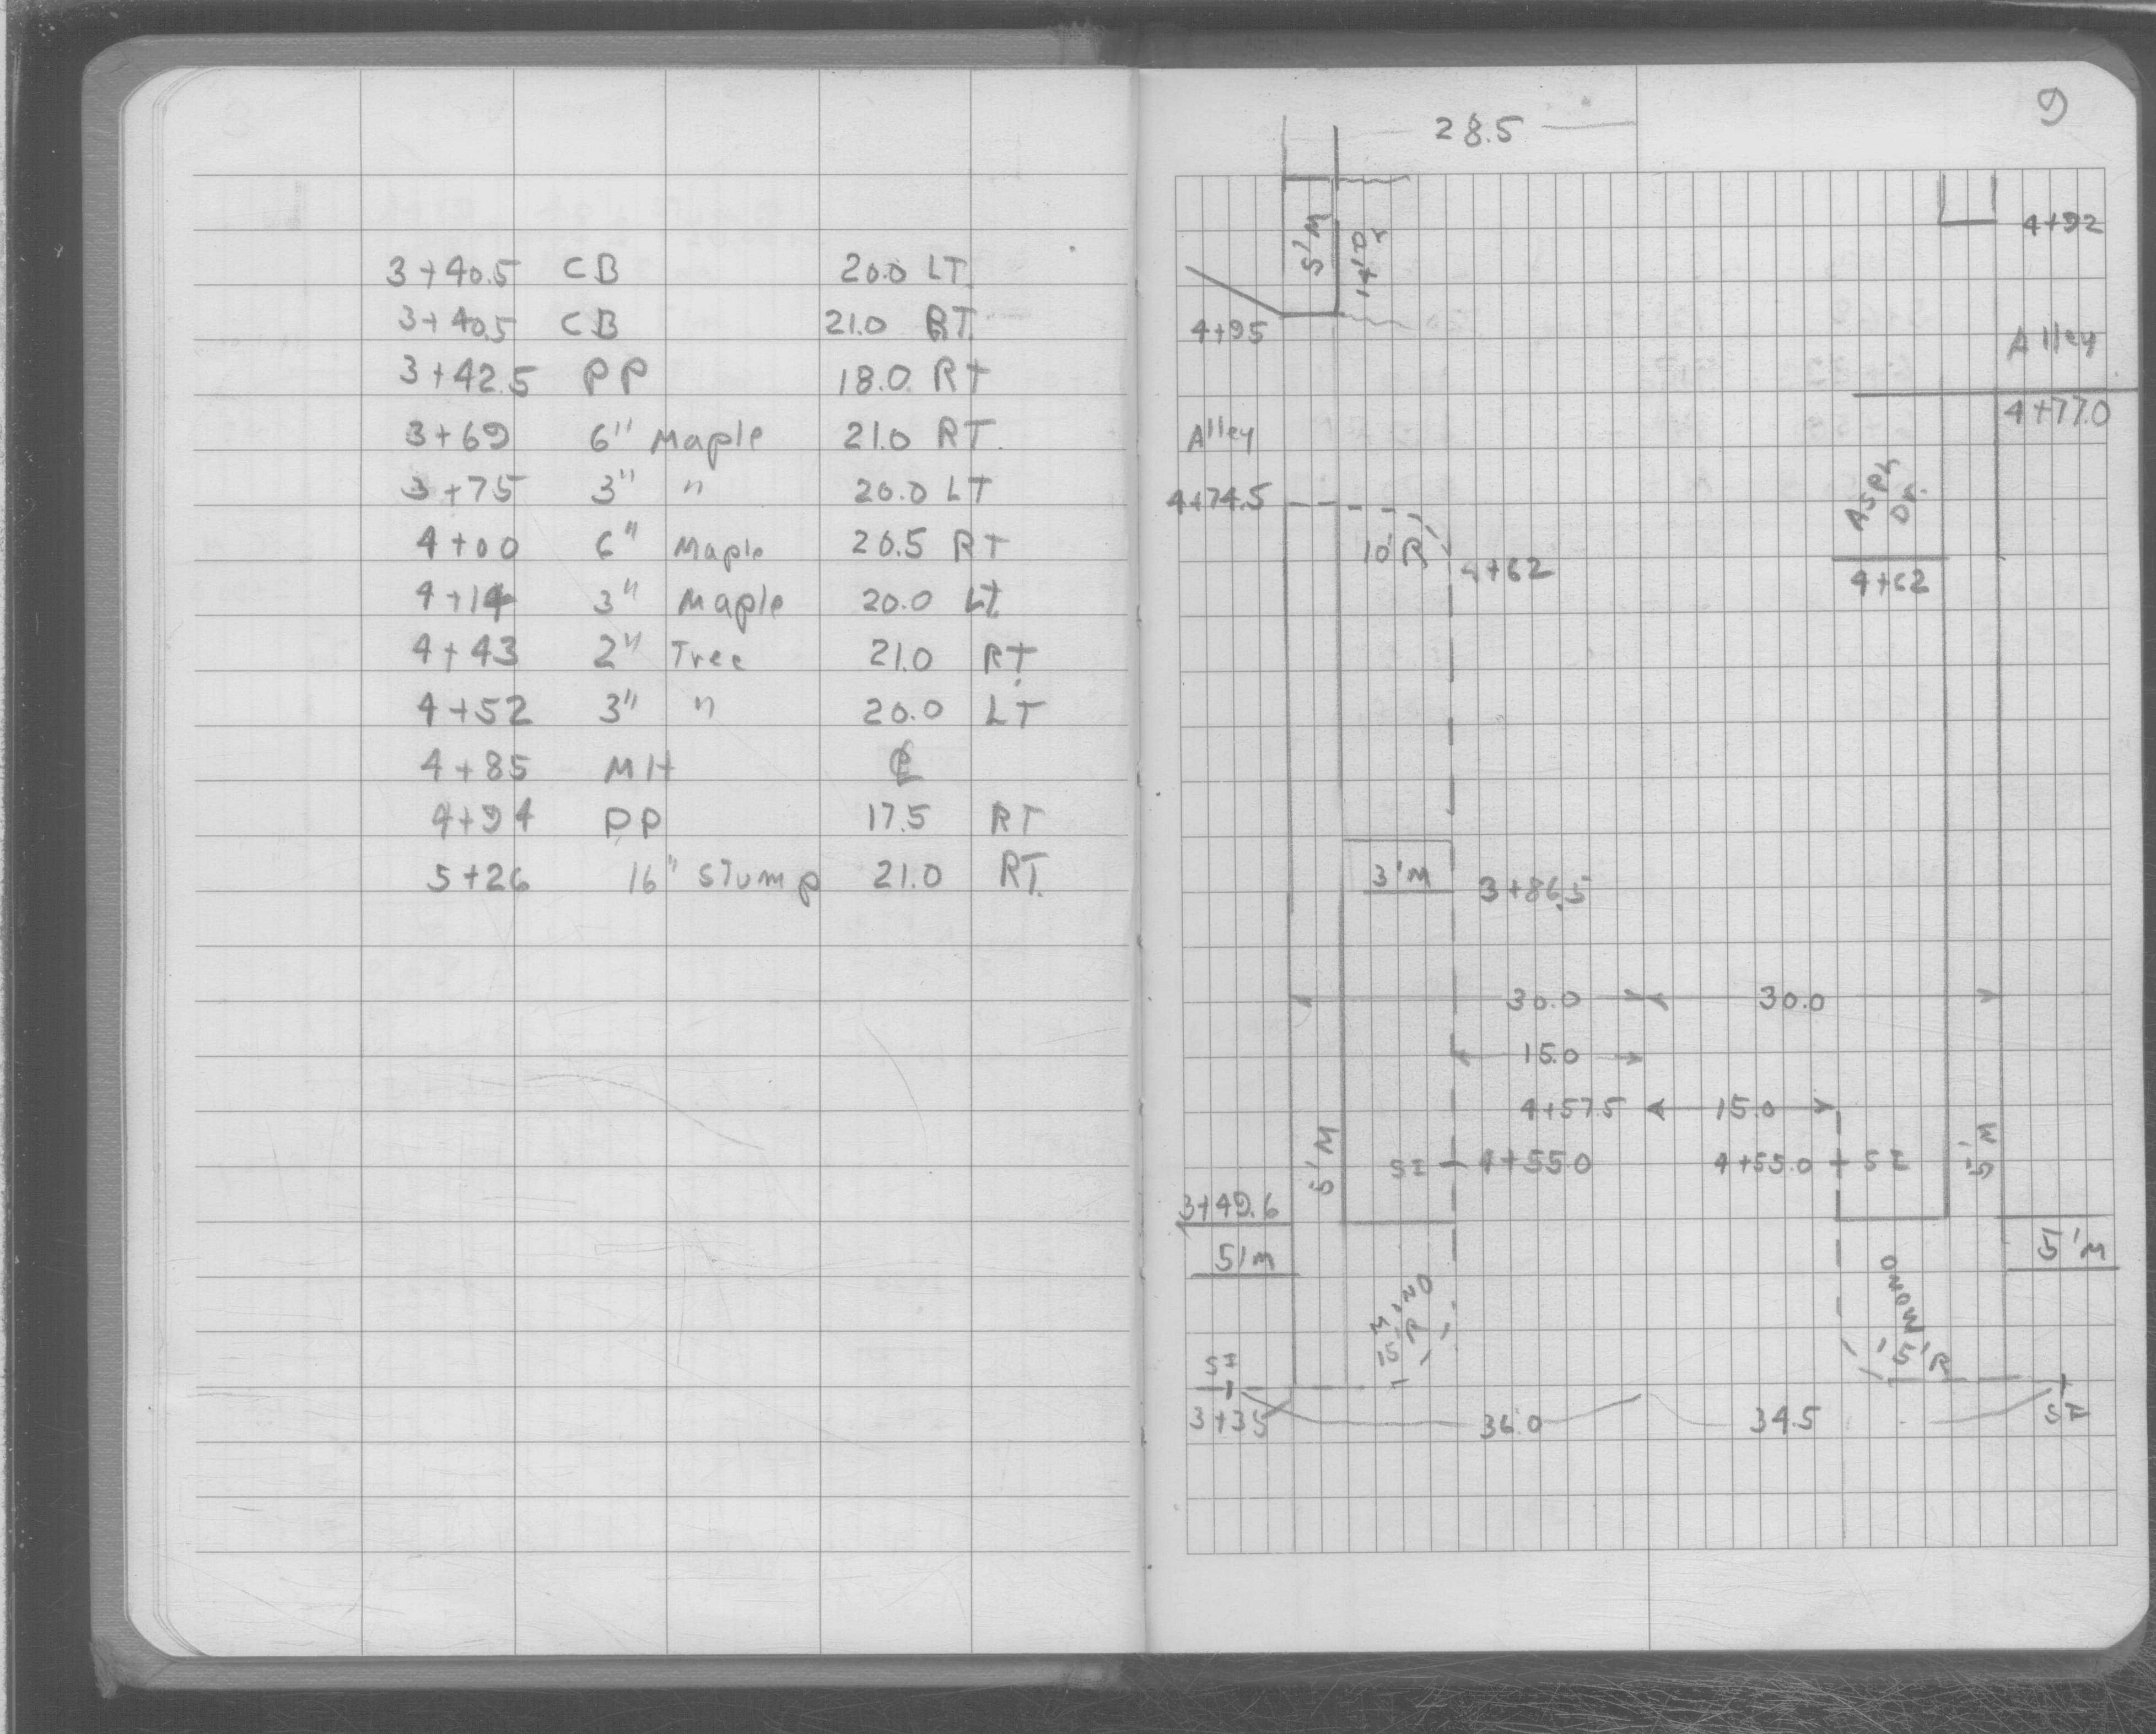 3+40.5 CB 20.0 LT.
3+40.5 CB 21.0 RT.
3+42.5 PP 18.0 RT
3+69 6" Maple 21.0 RT.
3+75 3" " 20.0 LT
4+00 6" Maple 20.5 RT
4+14 3" Maple 20.0 LT
4+43 2" Tree 21.0 RT.
4+52 3" " 20.0 LT
4+85 MH ℄
4+94 PP 17.5 RT
5+26 16" STump 21.0 RT.
9
28.5
5'M
14' Dr
4+92
4+95
Alley
4+77.0
Alley
4+74.5
10'R
4+62
Asph
Dr.
4+62
3'M
3+86.5
30.0 30.0
15.0
4+57.5 15.0
5'M
SI 4+55.0 4+55.0 SI
5'M
3+49.6
5'M
5'M
15'R
15'R
SI
3+35
36.0 34.5
SI